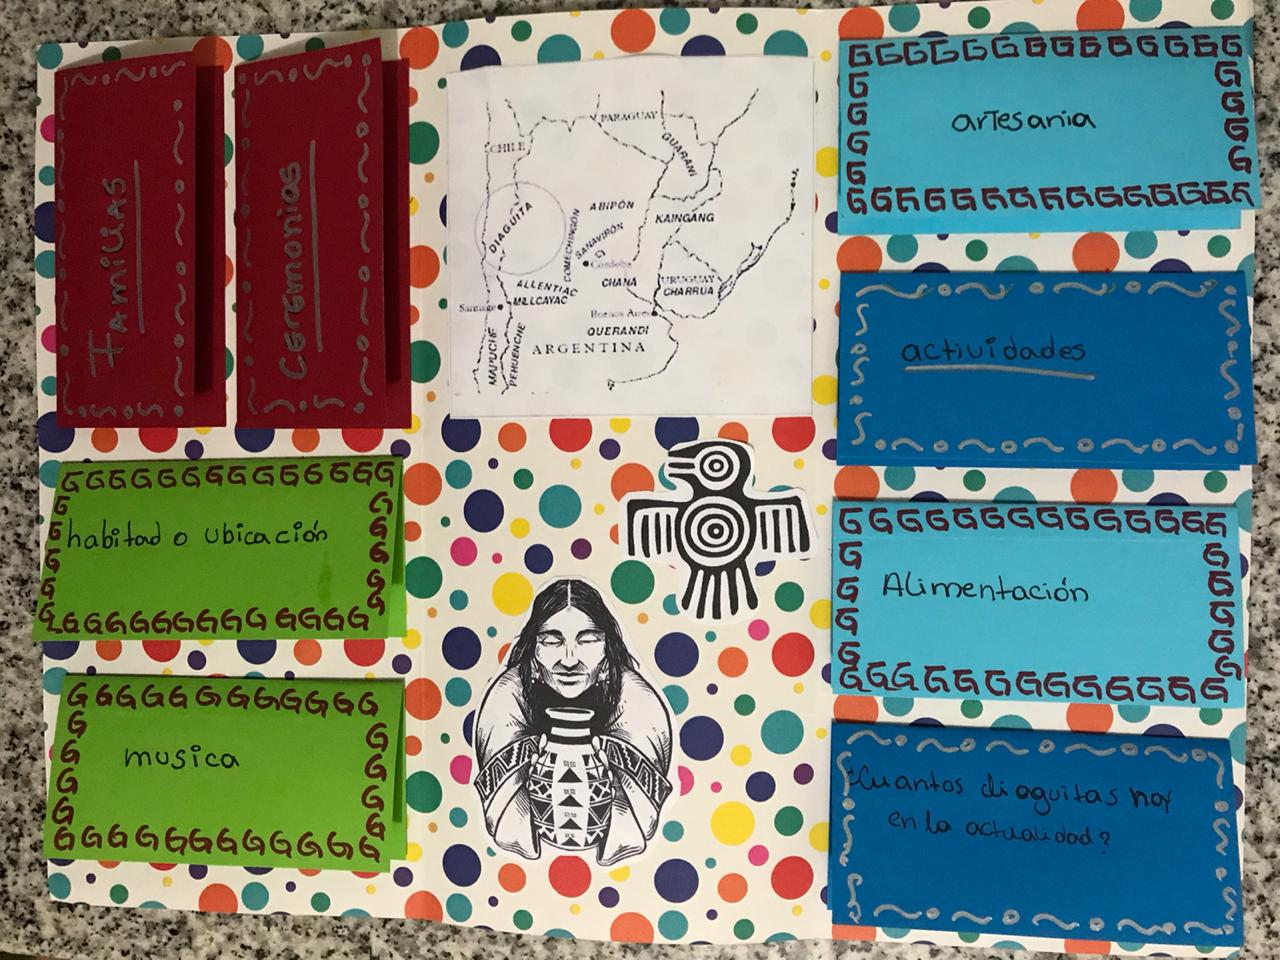 Familias
Ceremonias
habitad o ubicación
musica
PARAGUAY
CHILE
GUARANI
DIAGUITA
ABIPÓN
KAINGANG
COMECHINGÓN
SANAVIRÓN
Córdoba
ALLENTIAC
CHANA
URUGUAY
MILLCAYAC
CHARRUA
Santiago
Buenos Aires
QUERANDI
ARGENTINA
MAPUCHE
PEHUENCHE
arTesania
actividades
Alimentación
¿Cuantos diaguitas hay
en la actualidad?